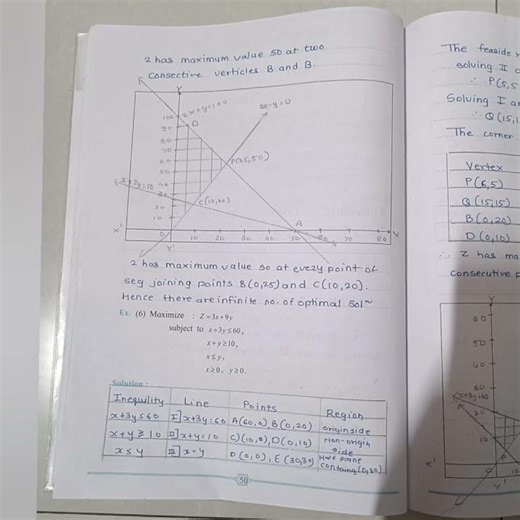 2 has maximum value 50 at two
consective verticles B and B.
Y
2x+y=100
2x-y=0
100
90
80
70
60
50
40
30
20
10
D
P(25,50)
C(10,20)
A
X'
0
10
20
30
40
50
60
70
80
X
Y'
2 has maximum value 50 at every point of
seg joining points B(0,25) and C(10,20).
Hence there are infinite no. of optimal Sol~
Ex. (6) Maximize : Z=3x+9y
subject to x+3y≤60,
x+y≥10,
x≤y,
x≥0, y≥0.
Solution :
Inequility Line Points Region
x+3y≤60 I] x+3y=60 A(60,0) B(0,20) originside
x+y≥10 II] x+y=10 C(10,0), D(0,10) Non-origin side
x≤y III] x=y O(0,0), E(30,30) Half plane containg (0,30)
50
The feasible
solving II
∴ P(5,5
Solving I an
∴ Q(15,1
The corner
Vertex
P(5,5)
Q(15,15)
B(0,20)
D(0,10)
∴ Z has ma
consecutive p
Y
60
50
40
30
x+3y=60
10
X'
A
Y'